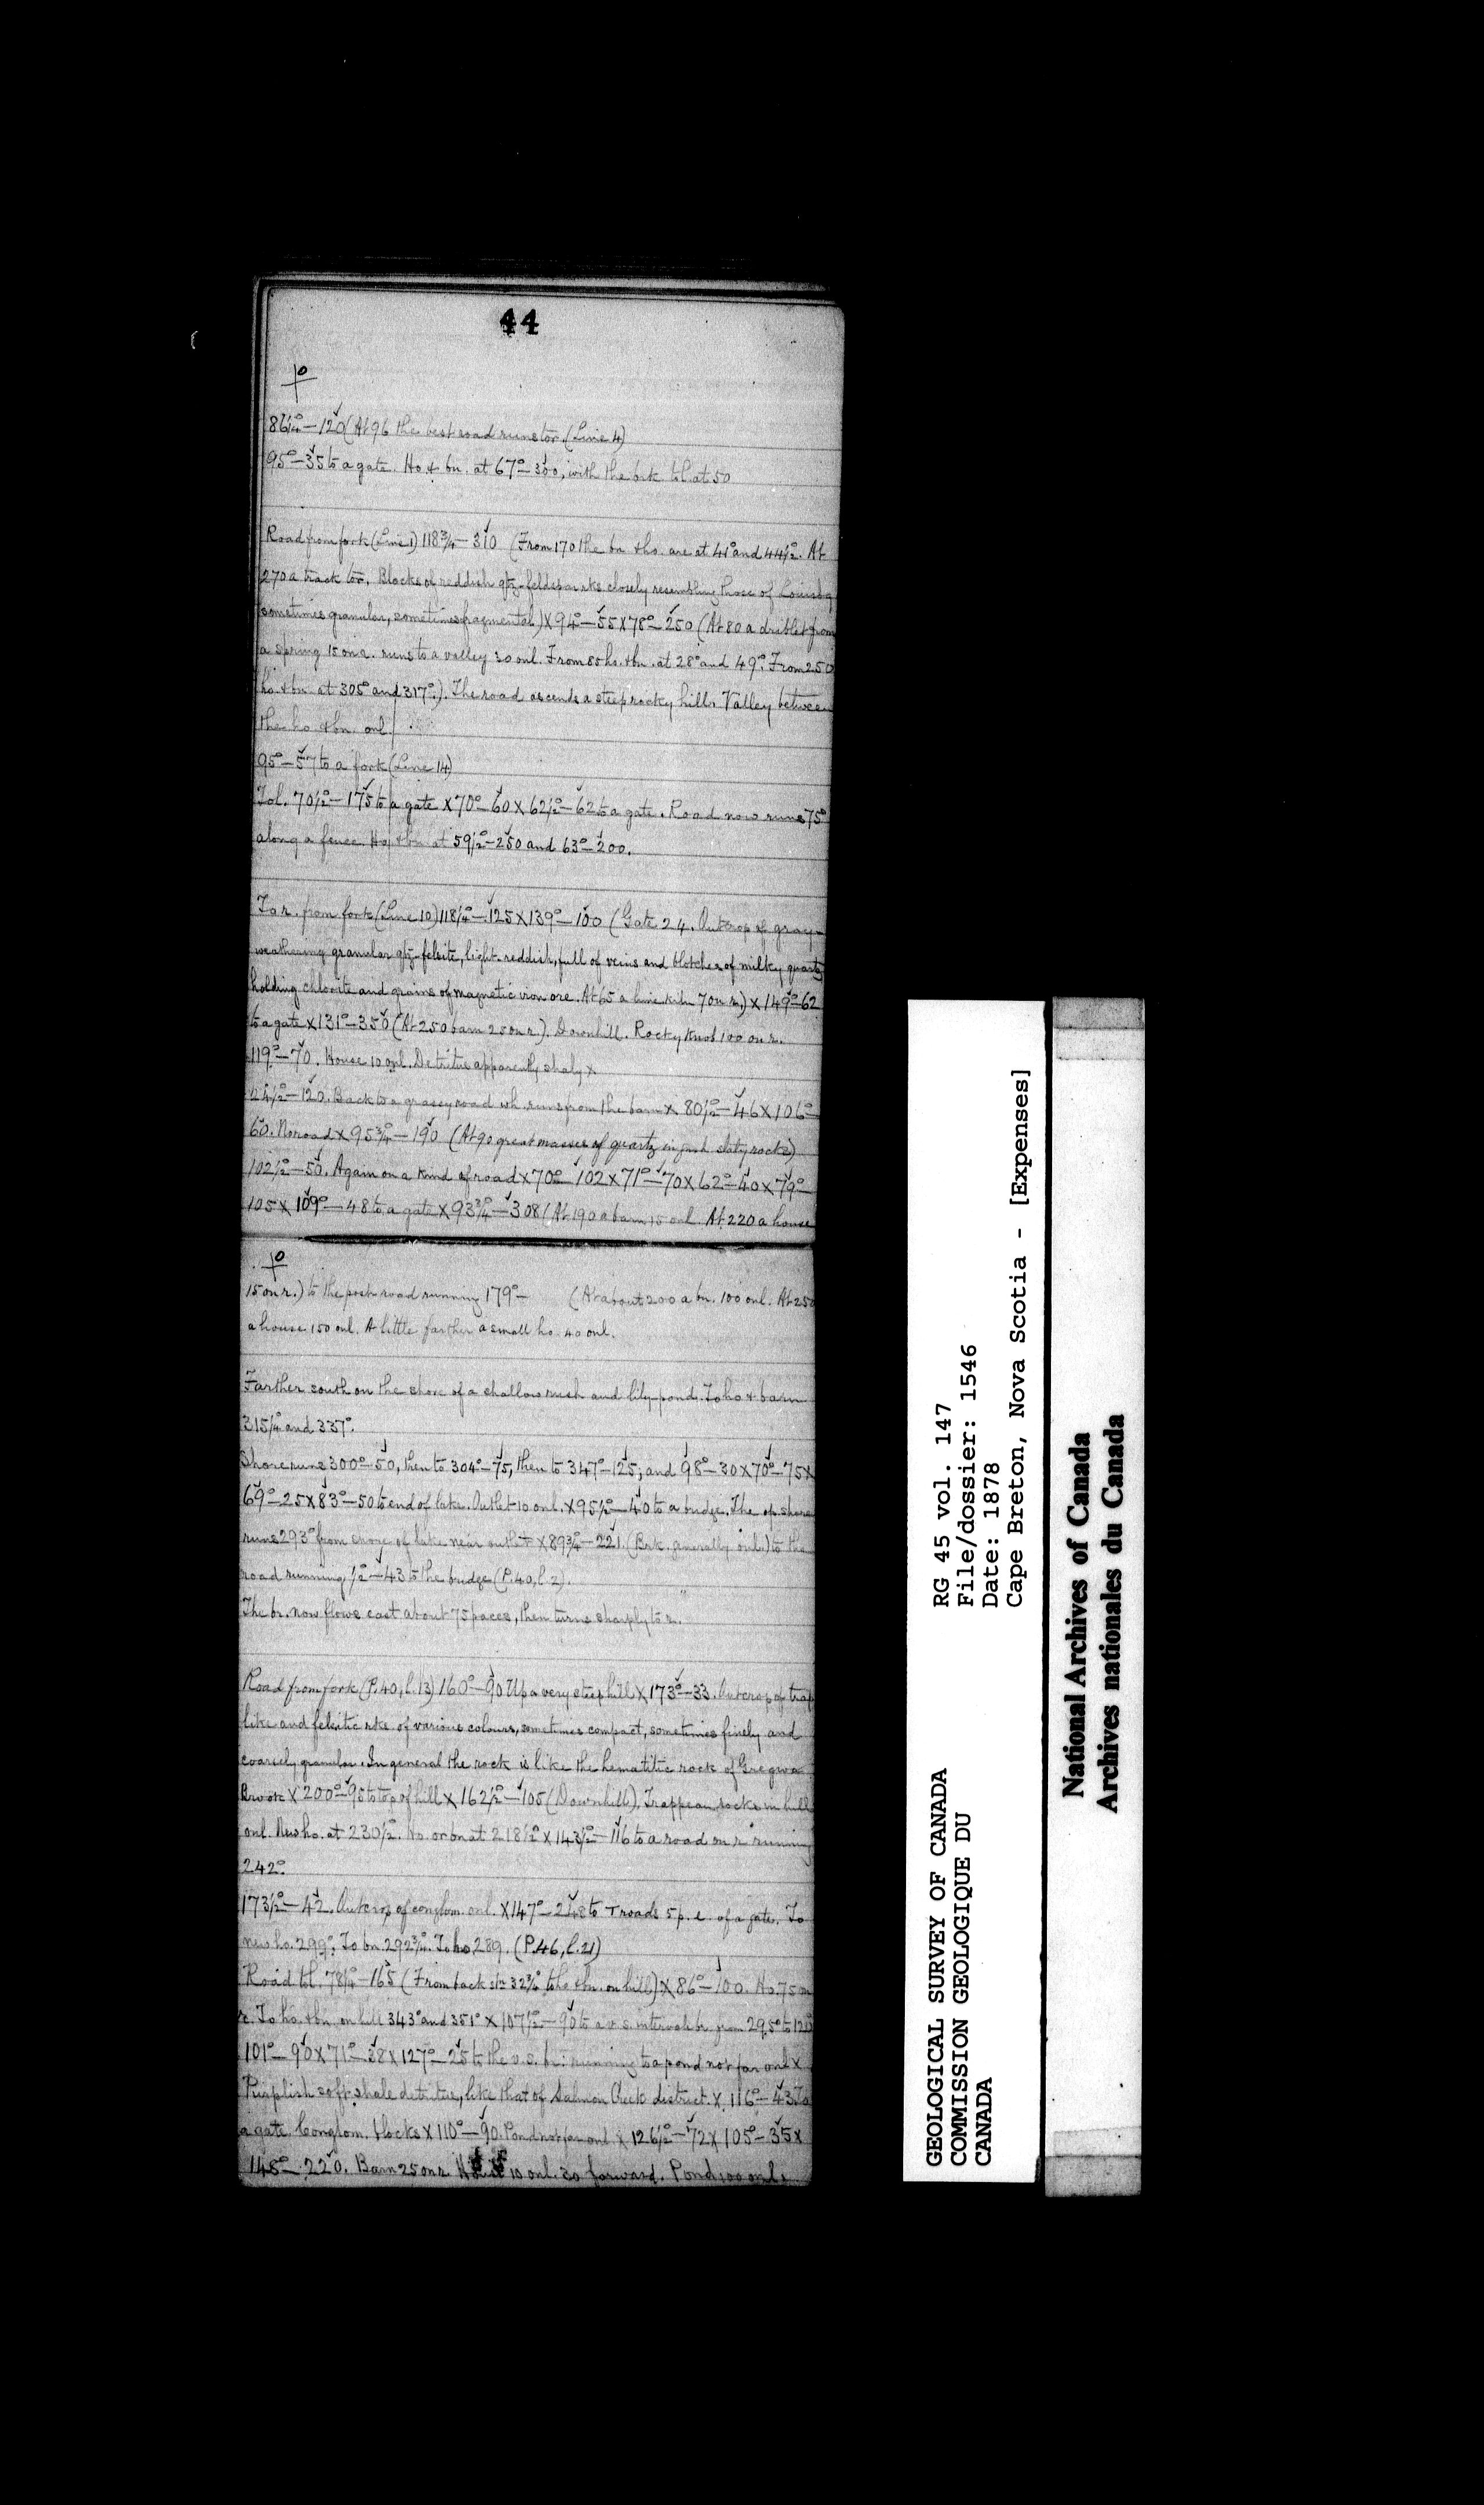 44
86¼° — 120 (At 96 the best road runs to r. (Line 4)
95° — 35 to a gate. Ho. & bn. at 67° — 300, with the brk. to l. at 50
Road from fork (Line 1) 118¾ — 310 (From 170 the bn. & ho. are at 41° and 44½°. At
270 a track to r. Blocks of reddish qtz-feldspar rks closely resembling those of Louisbg
sometimes granular, sometimes fragmental) X 94° — 55 X 78° — 250 (At 80 a driblet from
a spring 15 on r. runs to a valley 30 on l. From 85 ho. & bn. at 28° and 49°. From 250
ho. & bn. at 305° and 317°.). The road ascends a steep rocky hill. Valley between
the ho. & bn. on l.
95° — 57 to a fork (Line 14)
To l. 70½° — 175 to a gate X 70° — 60 X 62½° — 62 to a gate. Road now runs 75°
along a fence. Ho. & bn. at 59½° — 250 and 63° — 200.
To r. from fork (Line 10) 118¼° — 125 X 139° — 100 (Gate 24. Outcrop of gray-
weathering granular qtz-felsite, light-reddish, full of veins and blotches of milky quartz
holding chlorite and grains of magnetic iron ore. At 65 a lime kiln 7 on r.) X 149° — 62
to a gate X 131° — 350 (At 250 barn 25 on r.). Downhill. Rocky knob 100 on r.
119° — 70. House 10 on l. Detritus apparently shaly X
24½° — 120. Back to a grassy road wh. runs from the barn X 80½° — 46 X 106° —
60. No road X 95¾° — 190 (At 90 great masses of quartz in slaty rocks)
102½° — 50. Again on a kind of road X 70° — 102 X 71° — 70 X 62° — 40 X 79° —
105 X 109° — 48 to a gate X 93¾° — 308 (At 190 a barn 15 on l. At 220 a house
15 on r.) to the post-road running 179° — (At about 200 a bn. 100 on l. At 250
a house 150 on l. A little farther a small ho. 40 on l.
Farther south on the shore of a shallow rush and lily-pond. To ho. & barn
315¼° and 337°.
Shore runs 300° — 50, then to 304° — 75, then to 347° — 125; and 98° — 30 X 70° — 75 X
69° — 25 X 83° — 50 to end of lake. Outlet 10 on l. X 95½° — 40 to a bridge. The op. shore
runs 293° from of lake near outlet X 89¾° — 221 (Brk. generally on l.) to the
road running ½° — 43 to the bridge (P. 40, l. 2).
The br. now flows east about 75 paces, then turns sharply to r.
Road from fork (P. 40, l. 13) 160° — 90 Up a very steep hill X 173° — 33. Outcrop of trap
like and felsitic rks. of various colours, sometimes compact, sometimes finely and
coarsely granular. In general the rock is like the hematitic rock of Gregwa
Brook X 200° — 95 to top of hill X 162½° — 105 (Downhill). Trappean rocks in hill
on l. New ho. at 230½°. Ho. or bn at 218½° X 143½° — 116 to a road on r. running
242°.
173½° — 42. Outcrop of conglom. on l. X 147° — 248 to T roads 5 p. e. of a gate. To
new ho. 299°. To bn. 292¾°. To ho. 289. (P. 46, l. 21)
Road to l. 78¼° — 165 (From back stn 32¾° to ho. & bn. on hill) X 86° — 100. Ho. 75 on
r. To ho. & bn. on hill 343° and 351° X 107½° — 90 to a v. s. intervale br. from 295° to 120
101° — 90 X 71° — 38 X 127° — 25 to the v. s. br. running to a pond not far on l X
Purplish soft shale detritus, like that of Salmon Creek district. X 116° — 43 To
a gate. Conglom. blocks X 110° — 90. Pond not far on l X 126½° — 72 X 105° — 35 X
148° — 220. Barn 25 on r. House 10 on l. 30 forward. Pond 100 on l.
RG 45 vol. 147
File/dossier: 1546
Date: 1878
Cape Breton, Nova Scotia - [Expenses]
GEOLOGICAL SURVEY OF CANADA
COMMISSION GEOLOGIQUE DU
CANADA
National Archives of Canada
Archives nationales du Canada